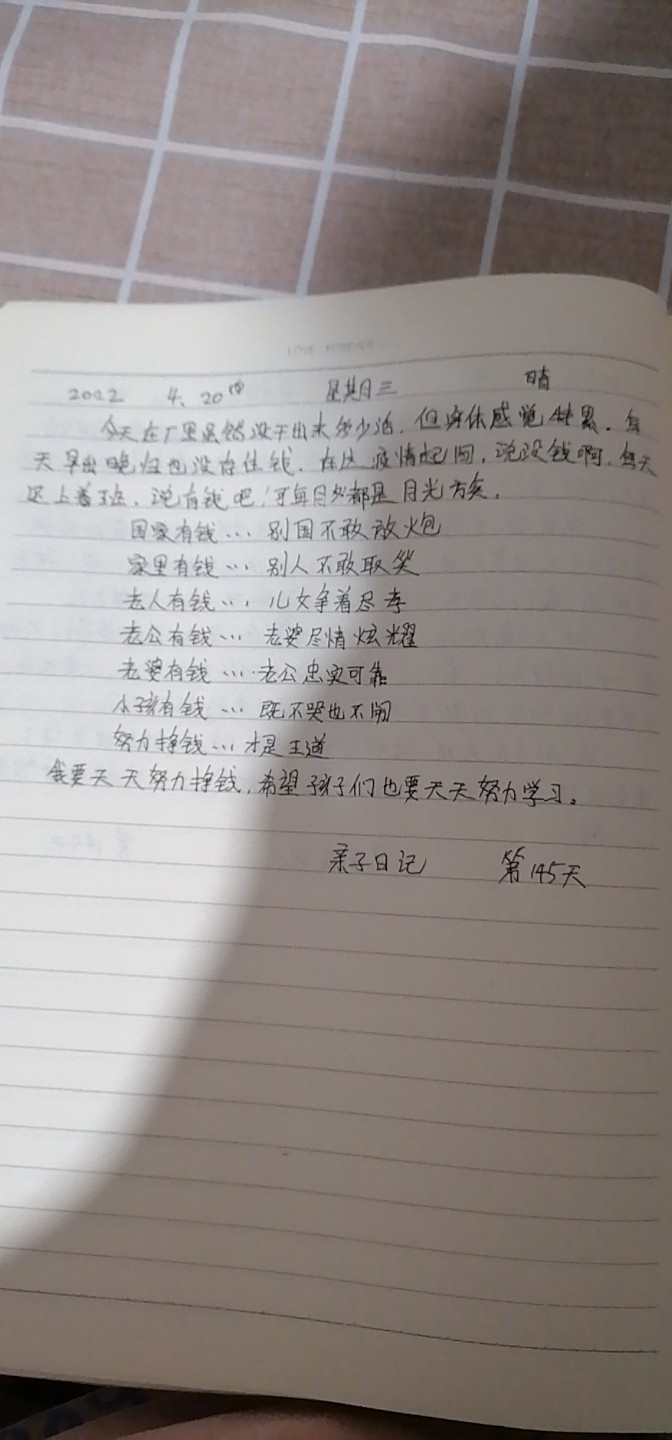 LOVE FOREVER
2022 4、20日 星期三 晴
今天在厂里虽然没干出来多少活，但身体感觉件累。每
天早出晚归也没存住钱。在这疫情起间，说没钱啊，每天
还上着班，说有钱吧！可每月都是月光方矣。
国家有钱… 别国不敢放炮
家里有钱… 别人不敢取笑
老人有钱… 儿女争着尽孝
老公有钱… 老婆尽情炫耀
老婆有钱… 老公忠实可靠
小孩有钱… 既不哭也不闹
努力挣钱… 才是王道
我要天天努力挣钱，希望孩子们也要天天努力学习。
亲子日记 第145天